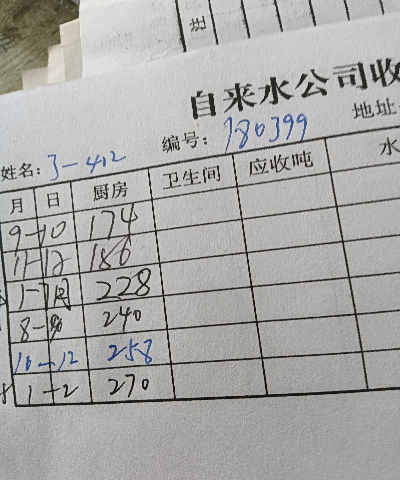 自来水公司收
姓名: 3-402 编号: 780399 地址
月 日 厨房 卫生间 应收吨 水
9-10 174
11-12 186
1-7月 228
8-9 240
10-12 258
1-2 270